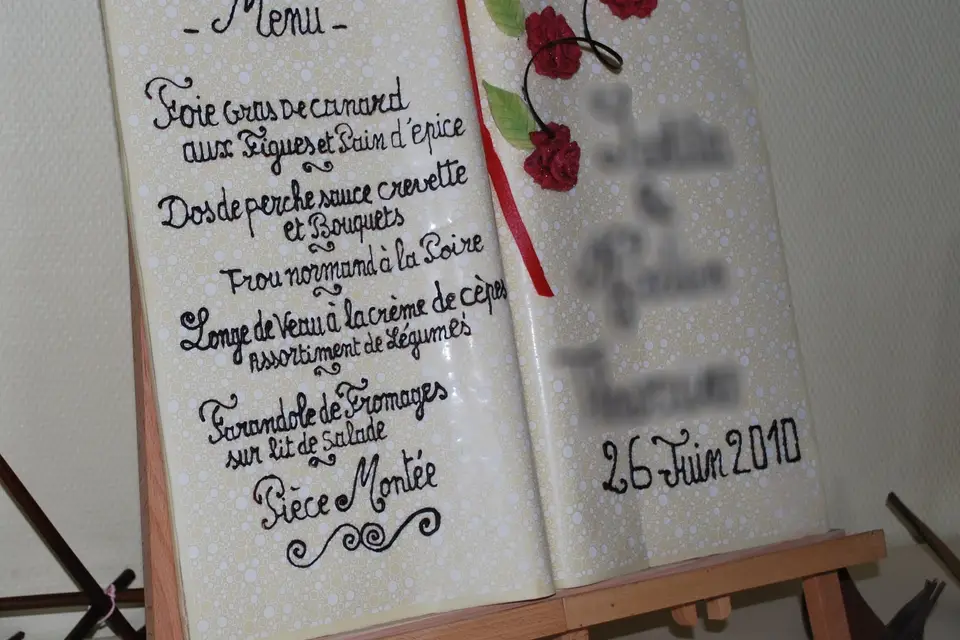 - Menu -
Foie Gras de canard
aux Figues et Pain d'épice
Dos de perche sauce crevette
et Bouquets
Trou normand à la Poire
Longe de Veau à la crème de cèpes
Assortiment de Légumes
Farandole de Fromages
sur lit de Salade
Pièce Montée
26 Juin 2010